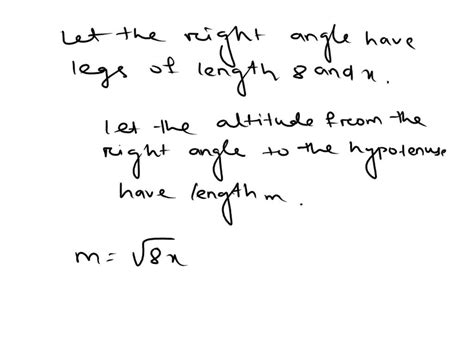 Let the reight angle have
legs of length 8 and x.
let the altitude from the
right angle to the hypotenuse
have length m.
m = √8x